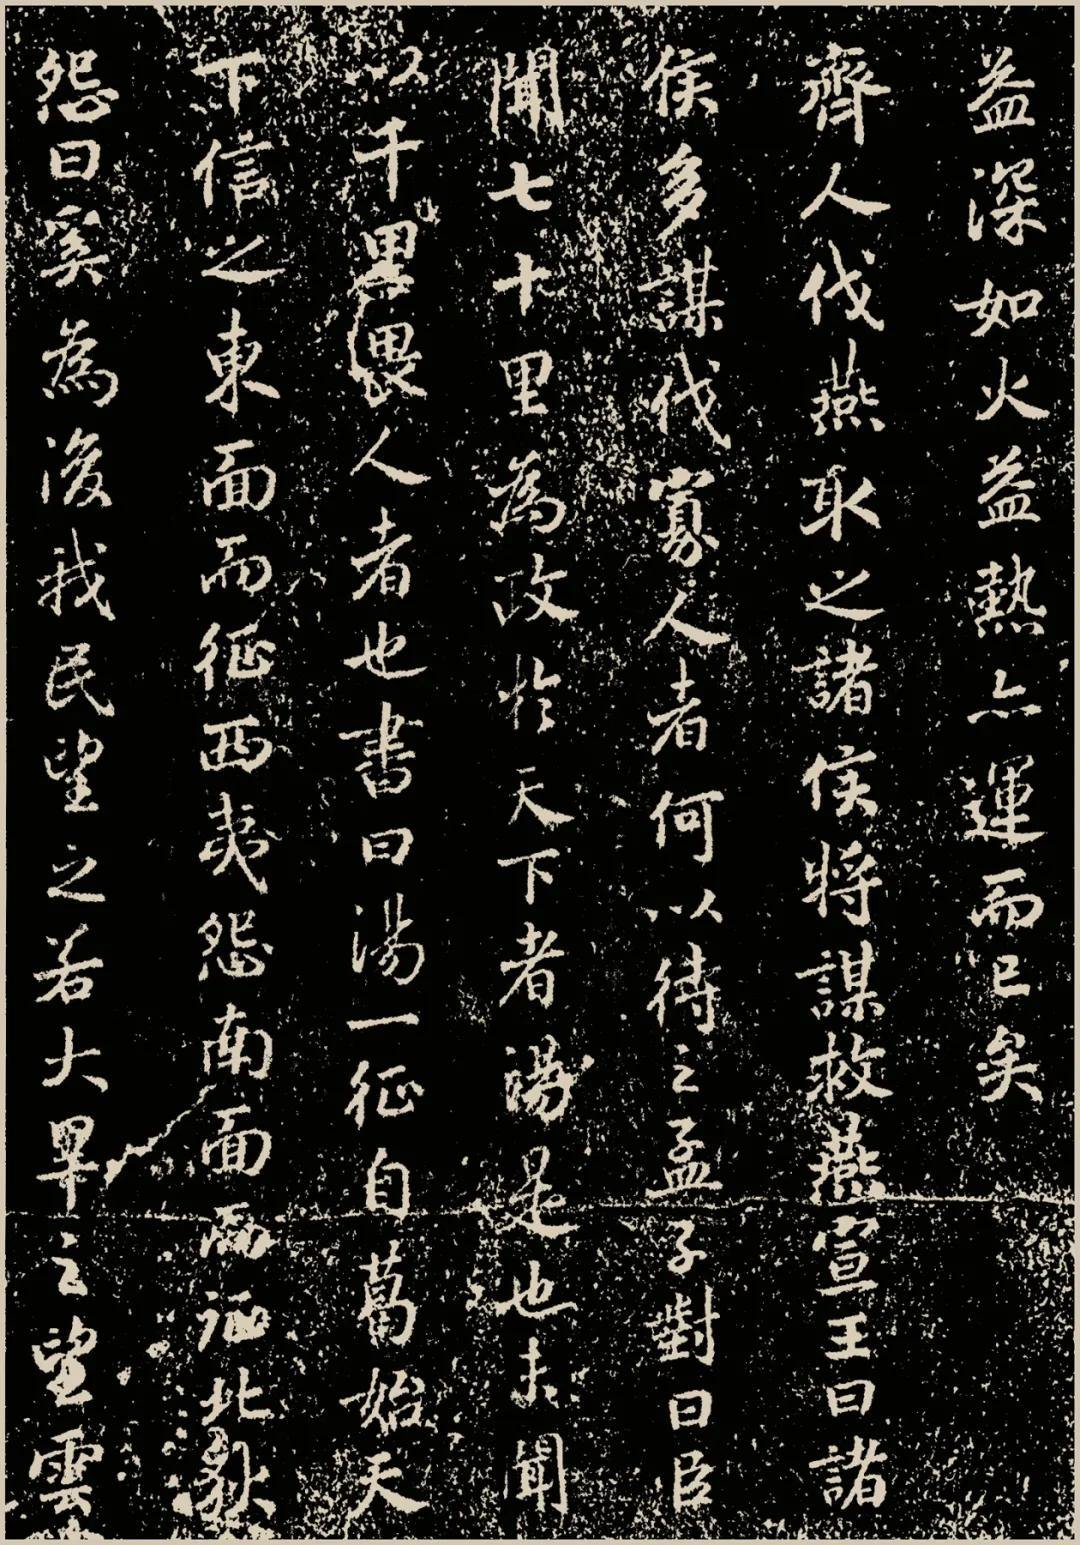 益深如火益熱亦運而已矣
齊人伐燕取之諸侯將謀救燕宣王曰諸
侯多謀伐寡人者何以待之孟子對曰臣
聞七十里為政於天下者湯是也未聞
以千里畏人者也書曰湯一征自葛始天
下信之東面而征西夷怨南面而征北狄
怨曰奚為後我民望之若大旱之望雲